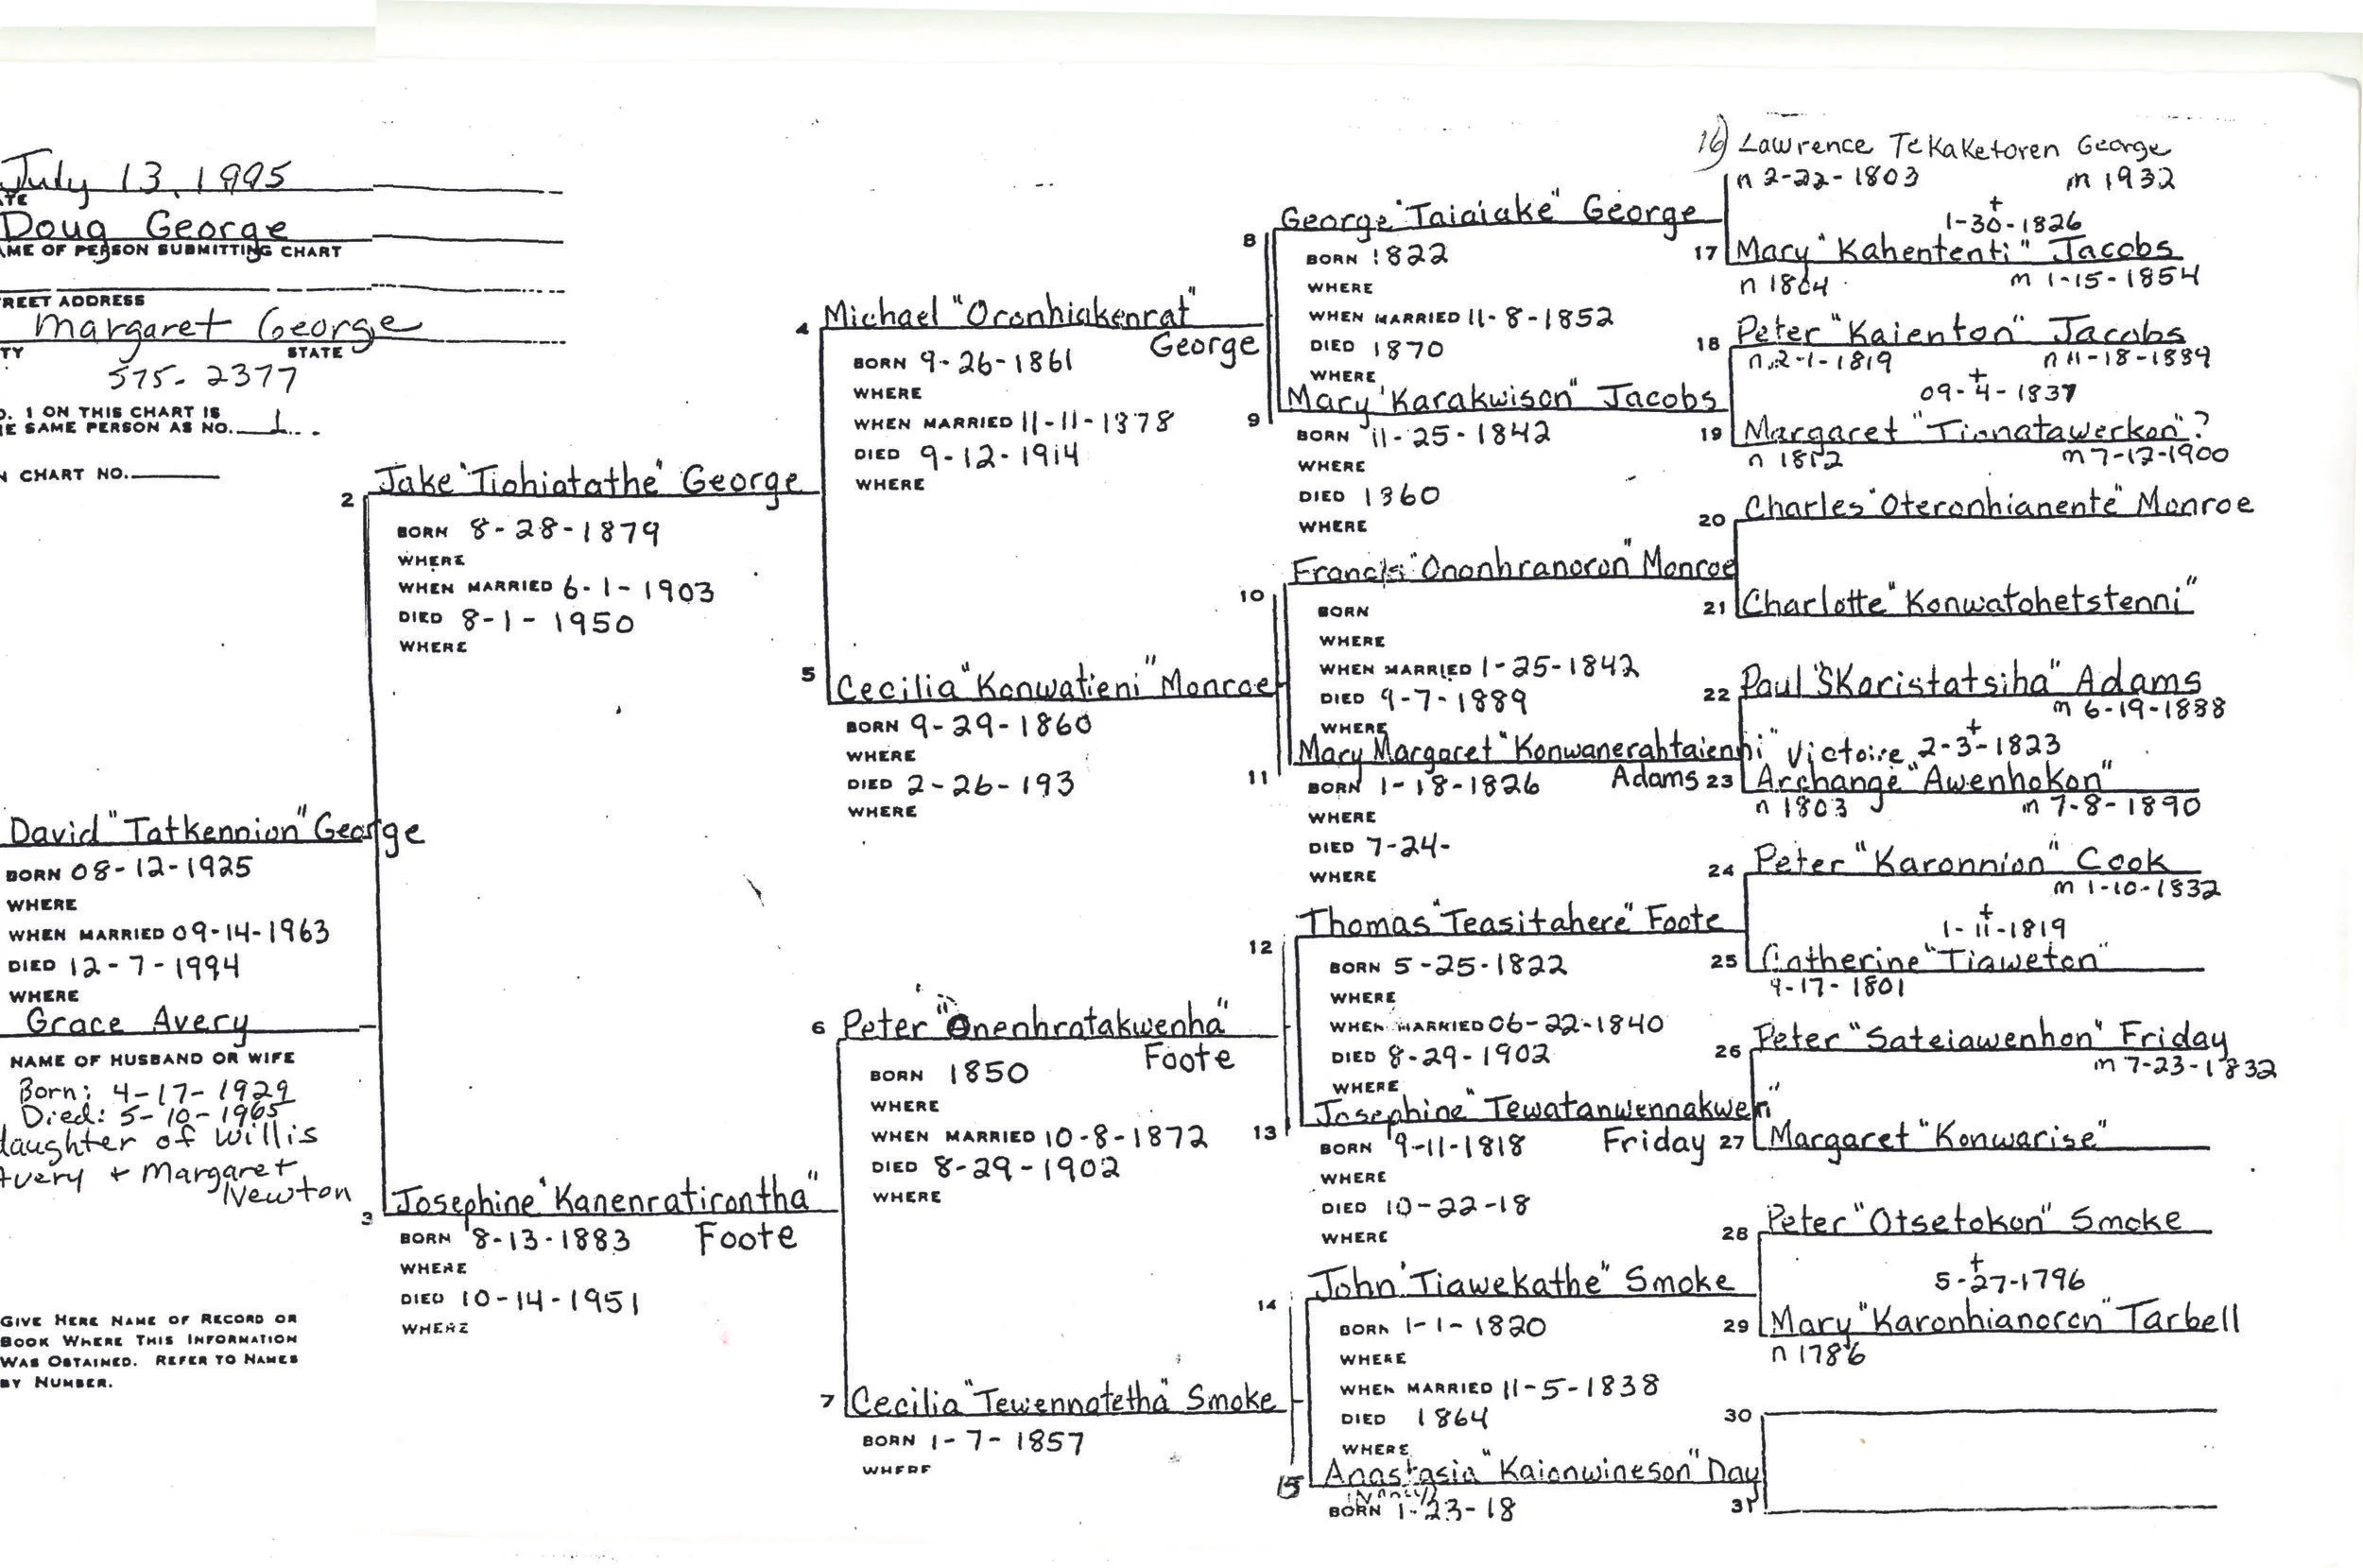 July 13, 1995
Doug George
AME OF PERSON SUBMITTING CHART
REET ADDRESS
Margaret George
TY STATE
575-2377
O. 1 ON THIS CHART IS
E SAME PERSON AS NO. 1
N CHART NO.
David "Tatkennion" George
BORN 08-12-1925
WHERE
WHEN MARRIED 09-14-1963
DIED 12-7-1994
WHERE
Grace Avery
NAME OF HUSBAND OR WIFE
Born: 4-17-1929
Died: 5-10-1965
daughter of Willis
Avery + Margaret
Newton
GIVE HERE NAME OF RECORD OR
BOOK WHERE THIS INFORMATION
WAS OBTAINED. REFER TO NAMES
BY NUMBER.
2 Jake "Tiohiatathe" George
BORN 8-28-1879
WHERE
WHEN MARRIED 6-1-1903
DIED 8-1-1950
WHERE
3 Josephine "Kanenratirontha"
Foote
BORN 8-13-1883
WHERE
DIED 10-14-1951
WHERE
4 Michael "Oronhiakenrat"
George
BORN 9-26-1861
WHERE
WHEN MARRIED 11-11-1878
DIED 9-12-1914
WHERE
5 Cecilia "Konwatieni" Monroe
BORN 9-29-1860
WHERE
DIED 2-26-193
WHERE
6 Peter "Onenhratakwenha"
Foote
BORN 1850
WHERE
WHEN MARRIED 10-8-1872
DIED 8-29-1902
WHERE
7 Cecilia "Tewennatetha" Smoke
BORN 1-7-1857
WHERE
8 George "Taiaiake" George
BORN 1822
WHERE
WHEN MARRIED 11-8-1852
DIED 1870
WHERE
9 Mary "Karakwison" Jacobs
BORN 11-25-1842
WHERE
DIED 1860
WHERE
10 Francis "Ononhranoron" Monroe
BORN
WHERE
WHEN MARRIED 1-25-1842
DIED 9-7-1889
WHERE
11 Mary Margaret "Konwanerahtaienhi"
Adams
BORN 1-18-1826
WHERE
DIED 7-24-
WHERE
12 Thomas "Teasitahere" Foote
BORN 5-25-1822
WHERE
WHEN MARRIED 06-22-1840
DIED 8-29-1902
WHERE
13 Josephine "Tewatanwennakwen"
Friday
BORN 9-11-1818
WHERE
DIED 10-22-18
WHERE
14 John "Tiawekathe" Smoke
BORN 1-1-1820
WHERE
WHEN MARRIED 11-5-1838
DIED 1864
WHERE
15 Anastasia "Kaionwineson" Day
(Nancy)
BORN 1-23-18
16) Lawrence TeKaKetoren George
n 2-22-1803 m 1932
+
1-30-1826
17 Mary "Kahententi" Jacobs
n 1804 m 1-15-1854
18 Peter "Kaienton" Jacobs
n 2-1-1819 n 11-18-1889
+
09-4-1837
19 Margaret "Tionatawerkon"?
n 1812 m 7-12-1900
20 Charles "Oteronhianente" Monroe
21 Charlotte "Konwatohetstenni"
22 Paul "SKaristatsiha" Adams
m 6-19-1888
+
Victoire 2-3-1823
23 Archange "Awenhokon"
n 1803 m 7-8-1890
24 Peter "Karonnion" Cook
m 1-10-1832
+
1-11-1819
25 Catherine "Tiaweton"
9-17-1801
26 Peter "Sateiawenhon" Friday
m 7-23-1832
27 Margaret "Konwarise"
28 Peter "Otsetokon" Smoke
+
5-27-1796
29 Mary "Karonhianoron" Tarbell
n 1786
30
31